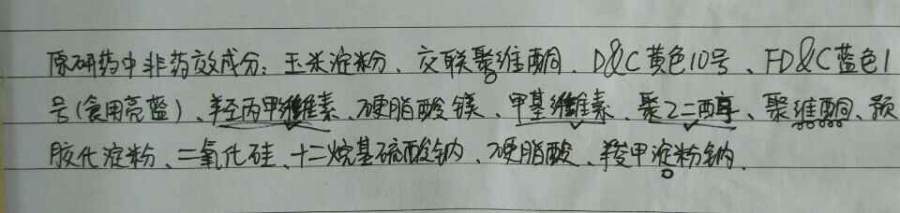 原研药中非药效成分:玉米淀粉、交联聚维酮、D&C黄色10号、FD&C蓝色1
号(食用亮蓝)、羟丙甲纤维素、硬脂酸镁、甲基纤维素、聚乙二醇、聚维酮、预
胶化淀粉、二氧化硅、十二烷基硫酸钠、硬脂酸、羧甲淀粉钠.